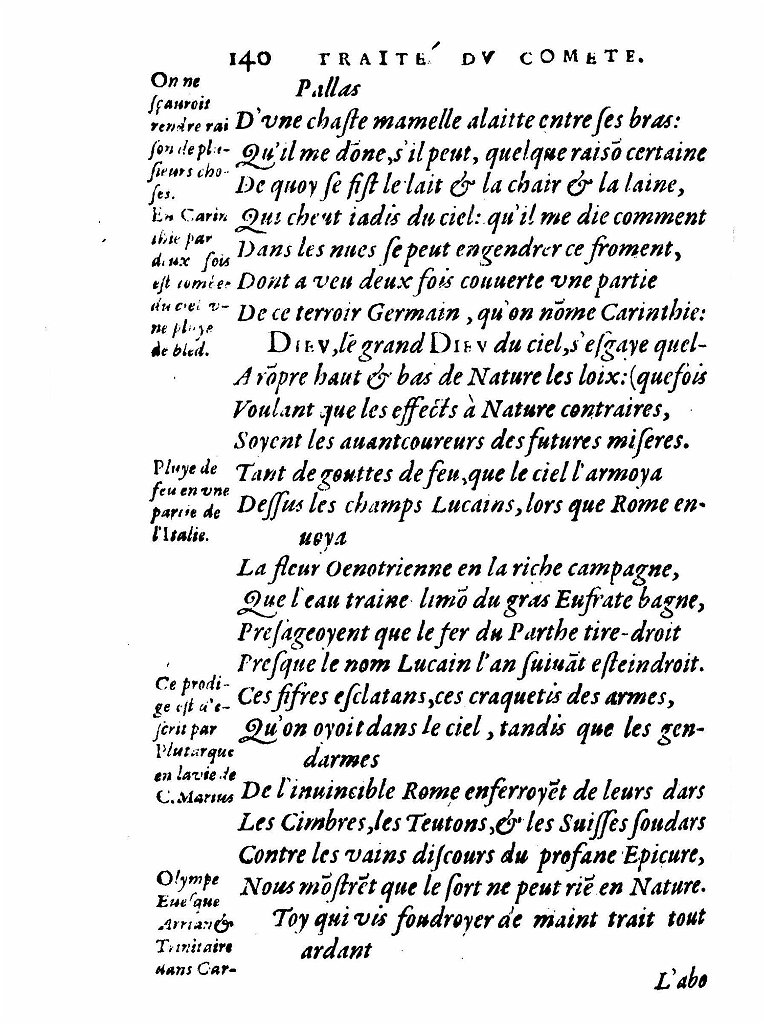 140 TRAITÉ DV COMETE.
On ne
sçauroit
rendre rai
son de plu-
sieurs cho-
ses.
En Carin
thie par
deux fois
est tombée
du ciel v-
ne pluye
de bled.
Pallas
D'vne chaste mamelle alaitte entre ses bras:
Qu'il me dõne, s'il peut, quelque raisõ certaine
De quoy se fist le lait & la chair & la laine,
Qui cheut iadis du ciel: qu'il me die comment
Dans les nues se peut engendrer ce froment,
Dont a veu deux fois couuerte vne partie
De ce terroir Germain, qu'on nõme Carinthie:
DIEV, le grand DIEV du ciel, s'esgaye quel-
A rõpre haut & bas de Nature les loix: (quefois
Voulant que les effects à Nature contraires,
Soyent les auantcoureurs des futures miseres.
Pluye de
feu en vne
partie de
l'Italie.
Tant de gouttes de feu, que le ciel l'armoya
Dessus les champs Lucains, lors que Rome en-
uoya
La fleur Oenotrienne en la riche campagne,
Que l'eau traine-limõ du gras Eufrate bagne,
Presageoyent que le fer du Parthe tire-droit
Presque le nom Lucain l'an suiuãt esteindroit.
Ce prodi-
ge est d'e-
scrit par
Plutarque
en la vie de
C. Marius
Ces fifres esclatans, ces craquetis des armes,
Qu'on oyoit dans le ciel, tandis que les gen-
darmes
De l'inuincible Rome enferroyẽt de leurs dars
Les Cimbres, les Teutons, & les Suisses soudars
Contre les vains discours du profane Epicure,
Nous mõstrẽt que le sort ne peut riẽ en Nature.
Olympe
Euesque
Arrian &
Trinitaire
dans Car-
Toy qui vis foudroyer de maint trait tout
ardant
L'abo